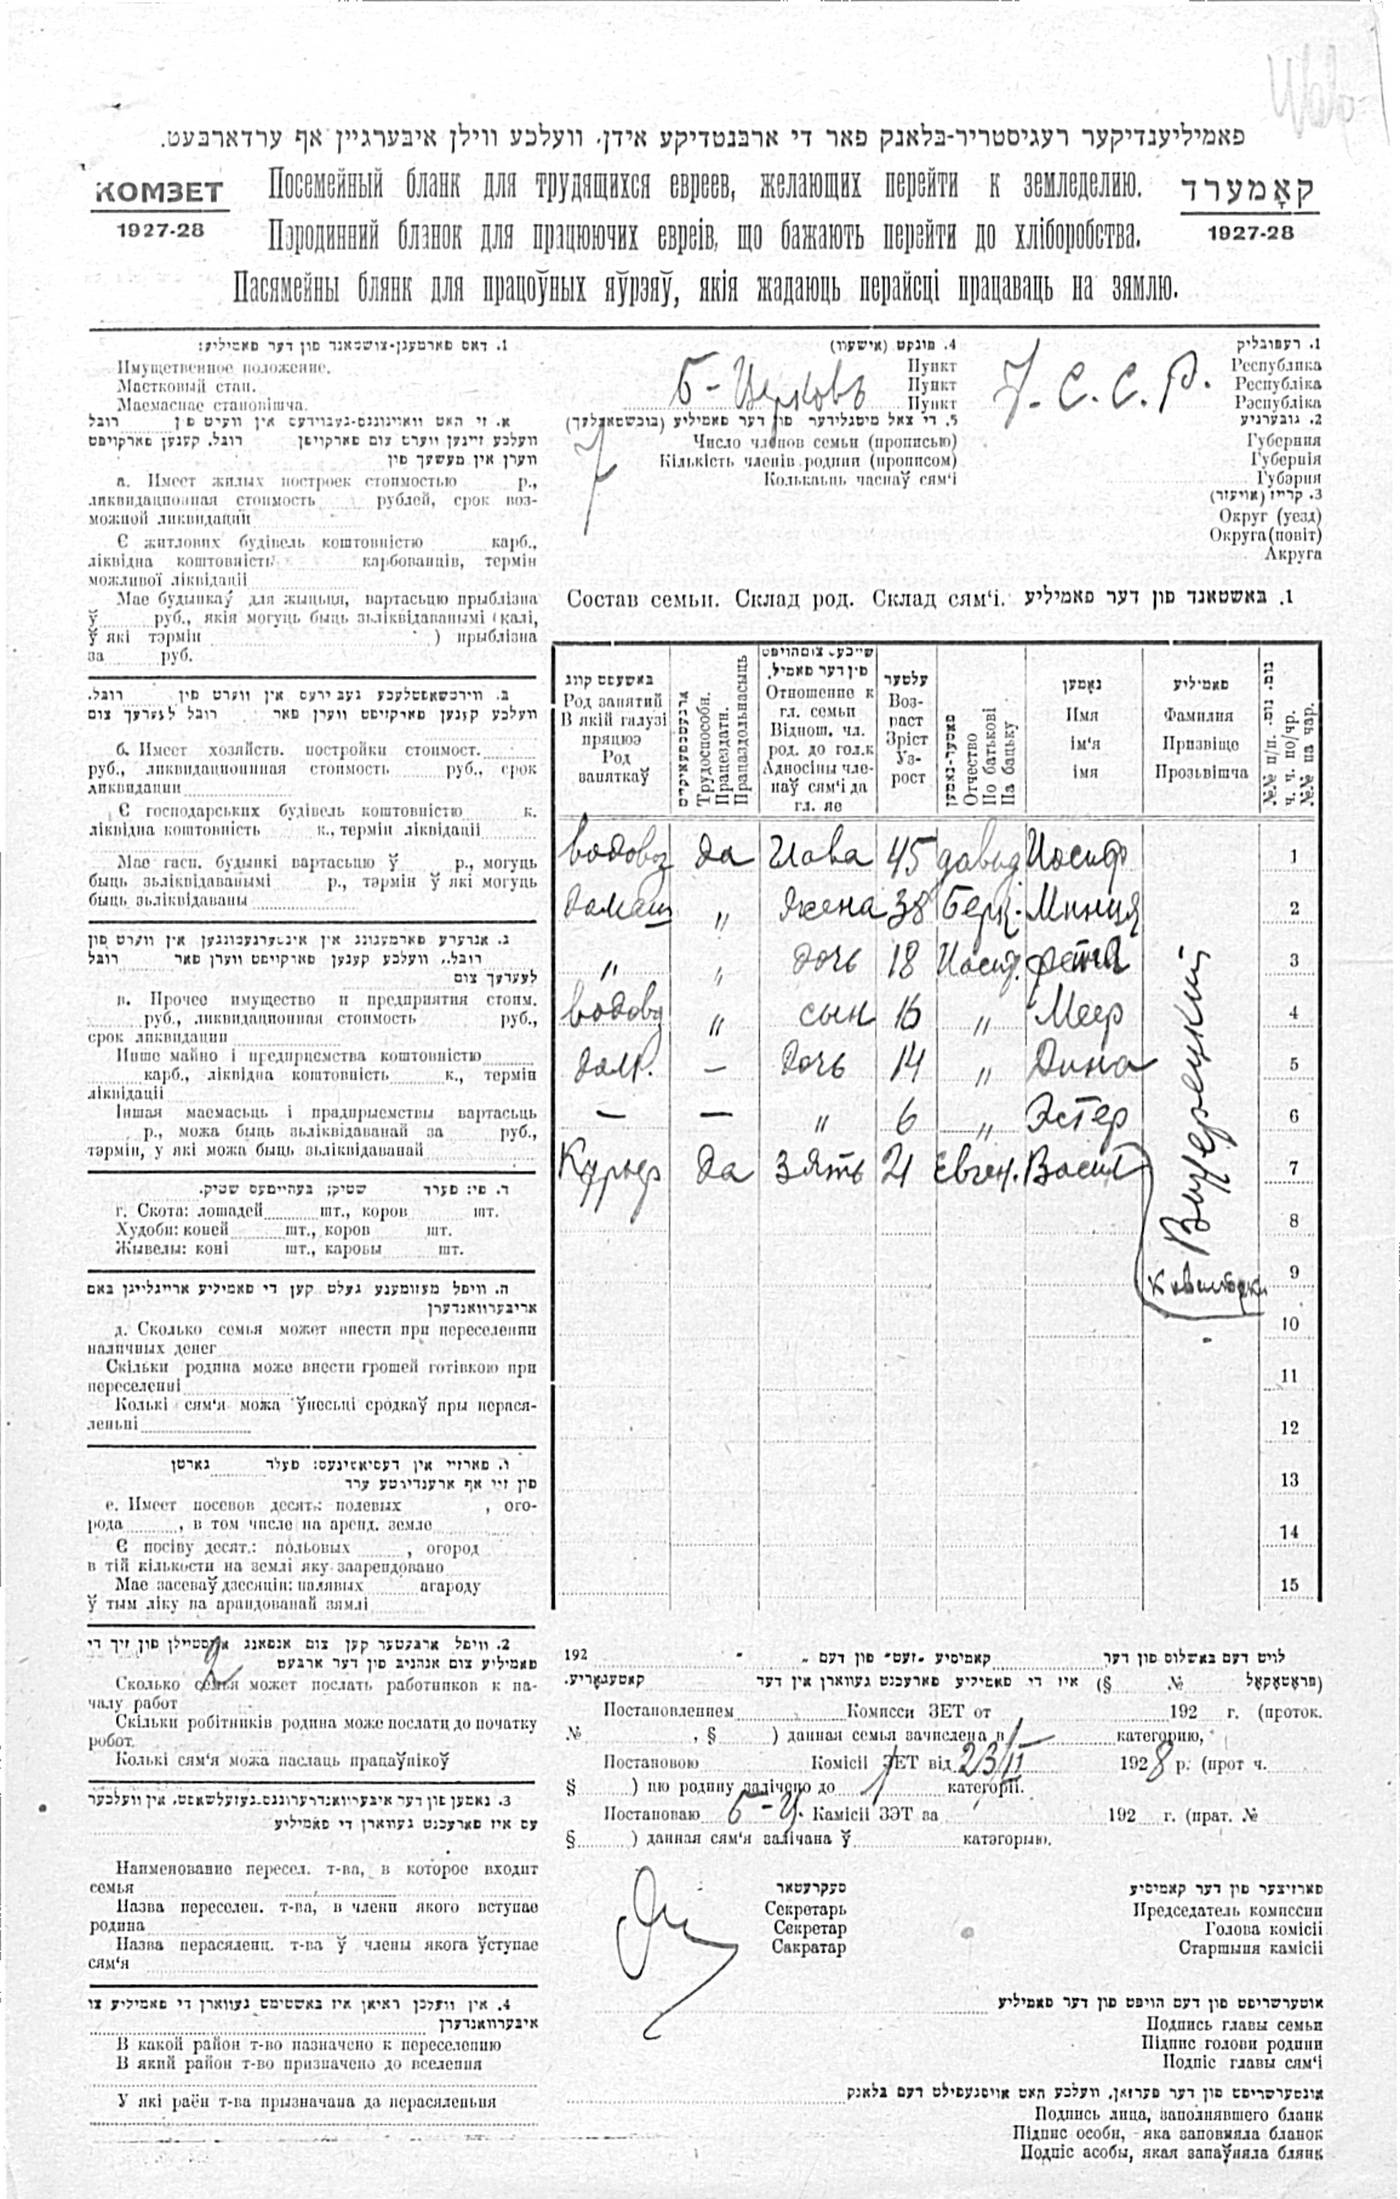 פאמיליענדיקער רעגיסטריר-בלאנק פאר די ארבנטדיקע אידן, וועלכע ווילן איבערגיין אף ערדארבעט.
КОМЗЕТ
1927-28
Посемейный бланк для трудящихся евреев, желающих перейти к земледелию.
Породинний бланок для працюючих евреів, що бажають перейти до хліборобства.
Пасямейны блянк для працоўных яўрэяў, якія жадаюць перайсці працаваць на зямлю.
קאָמערד
1927-28
1. רעפובליק
Республика
Республіка
Рэспубліка
У. С. С. Р.
2. גובערניע
Губерния
Губернія
Губэрня
3. קרייז (אויעזד)
Округ (уезд)
Округа (повіт)
Акруга
4. פונקט (אישעוו)
Пункт
Пункт
Пункт
Б-Церковь
5. די צאל מיטגלידער פון דער פאמיליע (בוכשטאבלעך)
Число членов семьи (прописью)
Кількість членів родини (прописом)
Колькаьць часнаў сям'і
7
1. דאס פארמעגן-צושטאנד פון דער פאמיליע:
Имущественное положение.
Мастковый стан.
Маемаснае становішча.
א. זי האט וואוינונגס-געביידעס אין ווערט פון רובל
וועלכע זיינען ווערט צום פארקויפן רובל. קענען פארקויפט
ווערן אין מעשעך פון
а. Имеет жилых построек стоимостью р.,
ликвидационная стоимость рублей, срок воз-
можной ликвидации
Є житлових будівель коштовністю карб.,
ліквідна коштовність карбованців, термін
можливої ліквідації
Мае будынкаў для жыцьця, вартасьцю прыблізна
ў руб., якія могуць быць зьліквідаванымі (калі,
ў які тэрмін ) прыблізна
за руб.
ב. ווירטשאפטלעכע געביידעס אין ווערט פון רובל.
וועלכע קענען פארקויפט ווערן פאר רובל לעערעך צום
б. Имеет хозяйств. постройки стоимост.
руб., ликвидационная стоимость руб., срок
ликвидации
Є господарських будівель коштовністю к.
ліквідна коштовність к., термін ліквідації
Мае гасп. будынкі вартасьцю ў р., могуць
быць зьліквідаванымі р., тэрмін ў які могуць
быць зьліквідаваны
ג. אנדערע פארמעגונג אין אונטערנעמונגען אין ווערט פון
רובל., וועלכע קענען פארקויפט ווערן פאר רובל
לעערעך צום
в. Прочее имущество и предприятия стоим.
руб., ликвидационная стоимость руб.,
срок ликвидации
Інше майно і предприємства коштовністю
карб., ліквідна коштовність к., термін
ліквідації
Іншая маемасьць і прадпрыемствы вартасьць
р., можа быць зьліквідаванай за руб.,
тэрмін, у які можа быць зьліквідаванай
ד. פי: פערד שטיק; בעהיימעס שטיק.
г. Скота: лошадей шт., коров шт.
Худоби: коней шт., коров шт.
Жывелы: коні шт., каровы шт.
ה. וויפל מעזומענע געלט קען די פאמיליע אריינלייגן באם
אריבערוואנדערן
д. Сколько семья может внести при переселении
наличных денег
Скільки родина може внести грошей готівкою при
переселенні
Колькі сям'я можа ўнесьці сродкаў пры перася-
леньні
ו. פארזיי אין דעסיאטינעס: פעלד גארטן
פון זיי אף ארענדירטע ערד
е. Имеет посевов десят.: полевых , ого-
рода , в том числе на аренд. земле
Є посіву десят.: польовых , огород
в тій кількости на землі яку заарендовано
Мае засеваў дзесяцін: палявых агароду
ў тым ліку на арандованай зямлі
2. וויפל ארבעטער קען צום אנפאנג אויסטיילן פון זיך די
פאמיליע צום אנהניב פון דער ארבעט
2
Сколько семья может послать работников к на-
чалу работ
Скільки робітників родина може послати до початку
робот.
Колькі сям'я можа паслаць працаўнікоў
3. נאמען פון דער איבערוואנדערונגס-געזעלשאפט, אין וועלכער
עס איז פארעכנט געווארן די פאמיליע
Наименование пересел. т-ва, в которое входит
семья
Назва переселен. т-ва, в члени якого вступае
родина
Назва перасяленц. т-ва ў члены якога ўступае
сям'я
4. אין וועלכן ראיאן איז באשטימט געווארן די פאמיליע צו
איבערוואנדערן
В какой район т-во назначено к переселению
В який район т-во призначено до вселення
У які раён т-ва прызначана да перасяленьня
Состав семьи. Склад род. Склад сям'і. 1. באשטאנד פון דער פאמיליע
באשעפטיקונג
Род занятий
В якій галузі
працюэ
Род
заняткаў
ארבעטספעאיקייט
Трудоспособн.
Працездатн.
Працаздольнасьць
שייכעס צום הויפט
פון דער פאמיל.
Отношение к
гл. семьи
Віднош. чл.
род. до гол.к
Адносіны чле-
наў сям'і да
гл. яе
עלטער
Воз-
раст
Зріст
Уз-
рост
פאטער-נאמען
Отчество
По батькові
Па бацьку
נאָמען
Имя
ім'я
імя
פאמיליע
Фамилия
Призвіще
Прозьвішча
נומ. נומ.
№№ п/п.
ч. ч. по/чр.
№№ па чар.
водовоз да глава 45 Давид Иосиф 1
домаш " жена 38 Берк. Минця 2
" " дочь 18 Иосиф. Фетя 3
водовоз " сын 16 " Меер 4
дом. — дочь 14 " Дина 5
— — " 6 " Эстер 6
Курьер да зять 21 Евген. Васил 7
8
9
10
11
12
13
14
15
לויט דעם באשלוס פון דער קאמיסיע "זעט" פון דעם " " 192
(פראטאקאל № §) איז די פאמיליע פארעכנט געווארן אין דער קאטעגאריע.
Постановлением Комисси ЗЕТ от 192 г. (проток.
№ , § ) данная семья зачислена в категорию,
Постановою Комісії ЗЕТ від 23/II 1928 р. (прот ч.
§ ) цю родину залічено до 1 категорії.
Постановаю Б-Ц. Камісіі ЗЭТ за 192 г. (прат. №
§ ) данная сям'я залічана ў катэгорыю.
סעקרעטאר
Секретарь
Секретар
Сакратар
פארזיצער פון דער קאמיסיע
Председатель комиссии
Голова комісії
Старшыня камісіі
אונטערשריפט פון דעם הויפט פון דער פאמיליע
Подпись главы семьи
Підпис голови родини
Подпіс главы сям'і
אונטערשריפט פון דער פערזאן, וועלכע האט אויסגעפילט דעם בלאנק
Подпись лица, заполнявшего бланк
Підпис особи, яка заповняла бланок
Подпіс асобы, якая запаўняла блянк